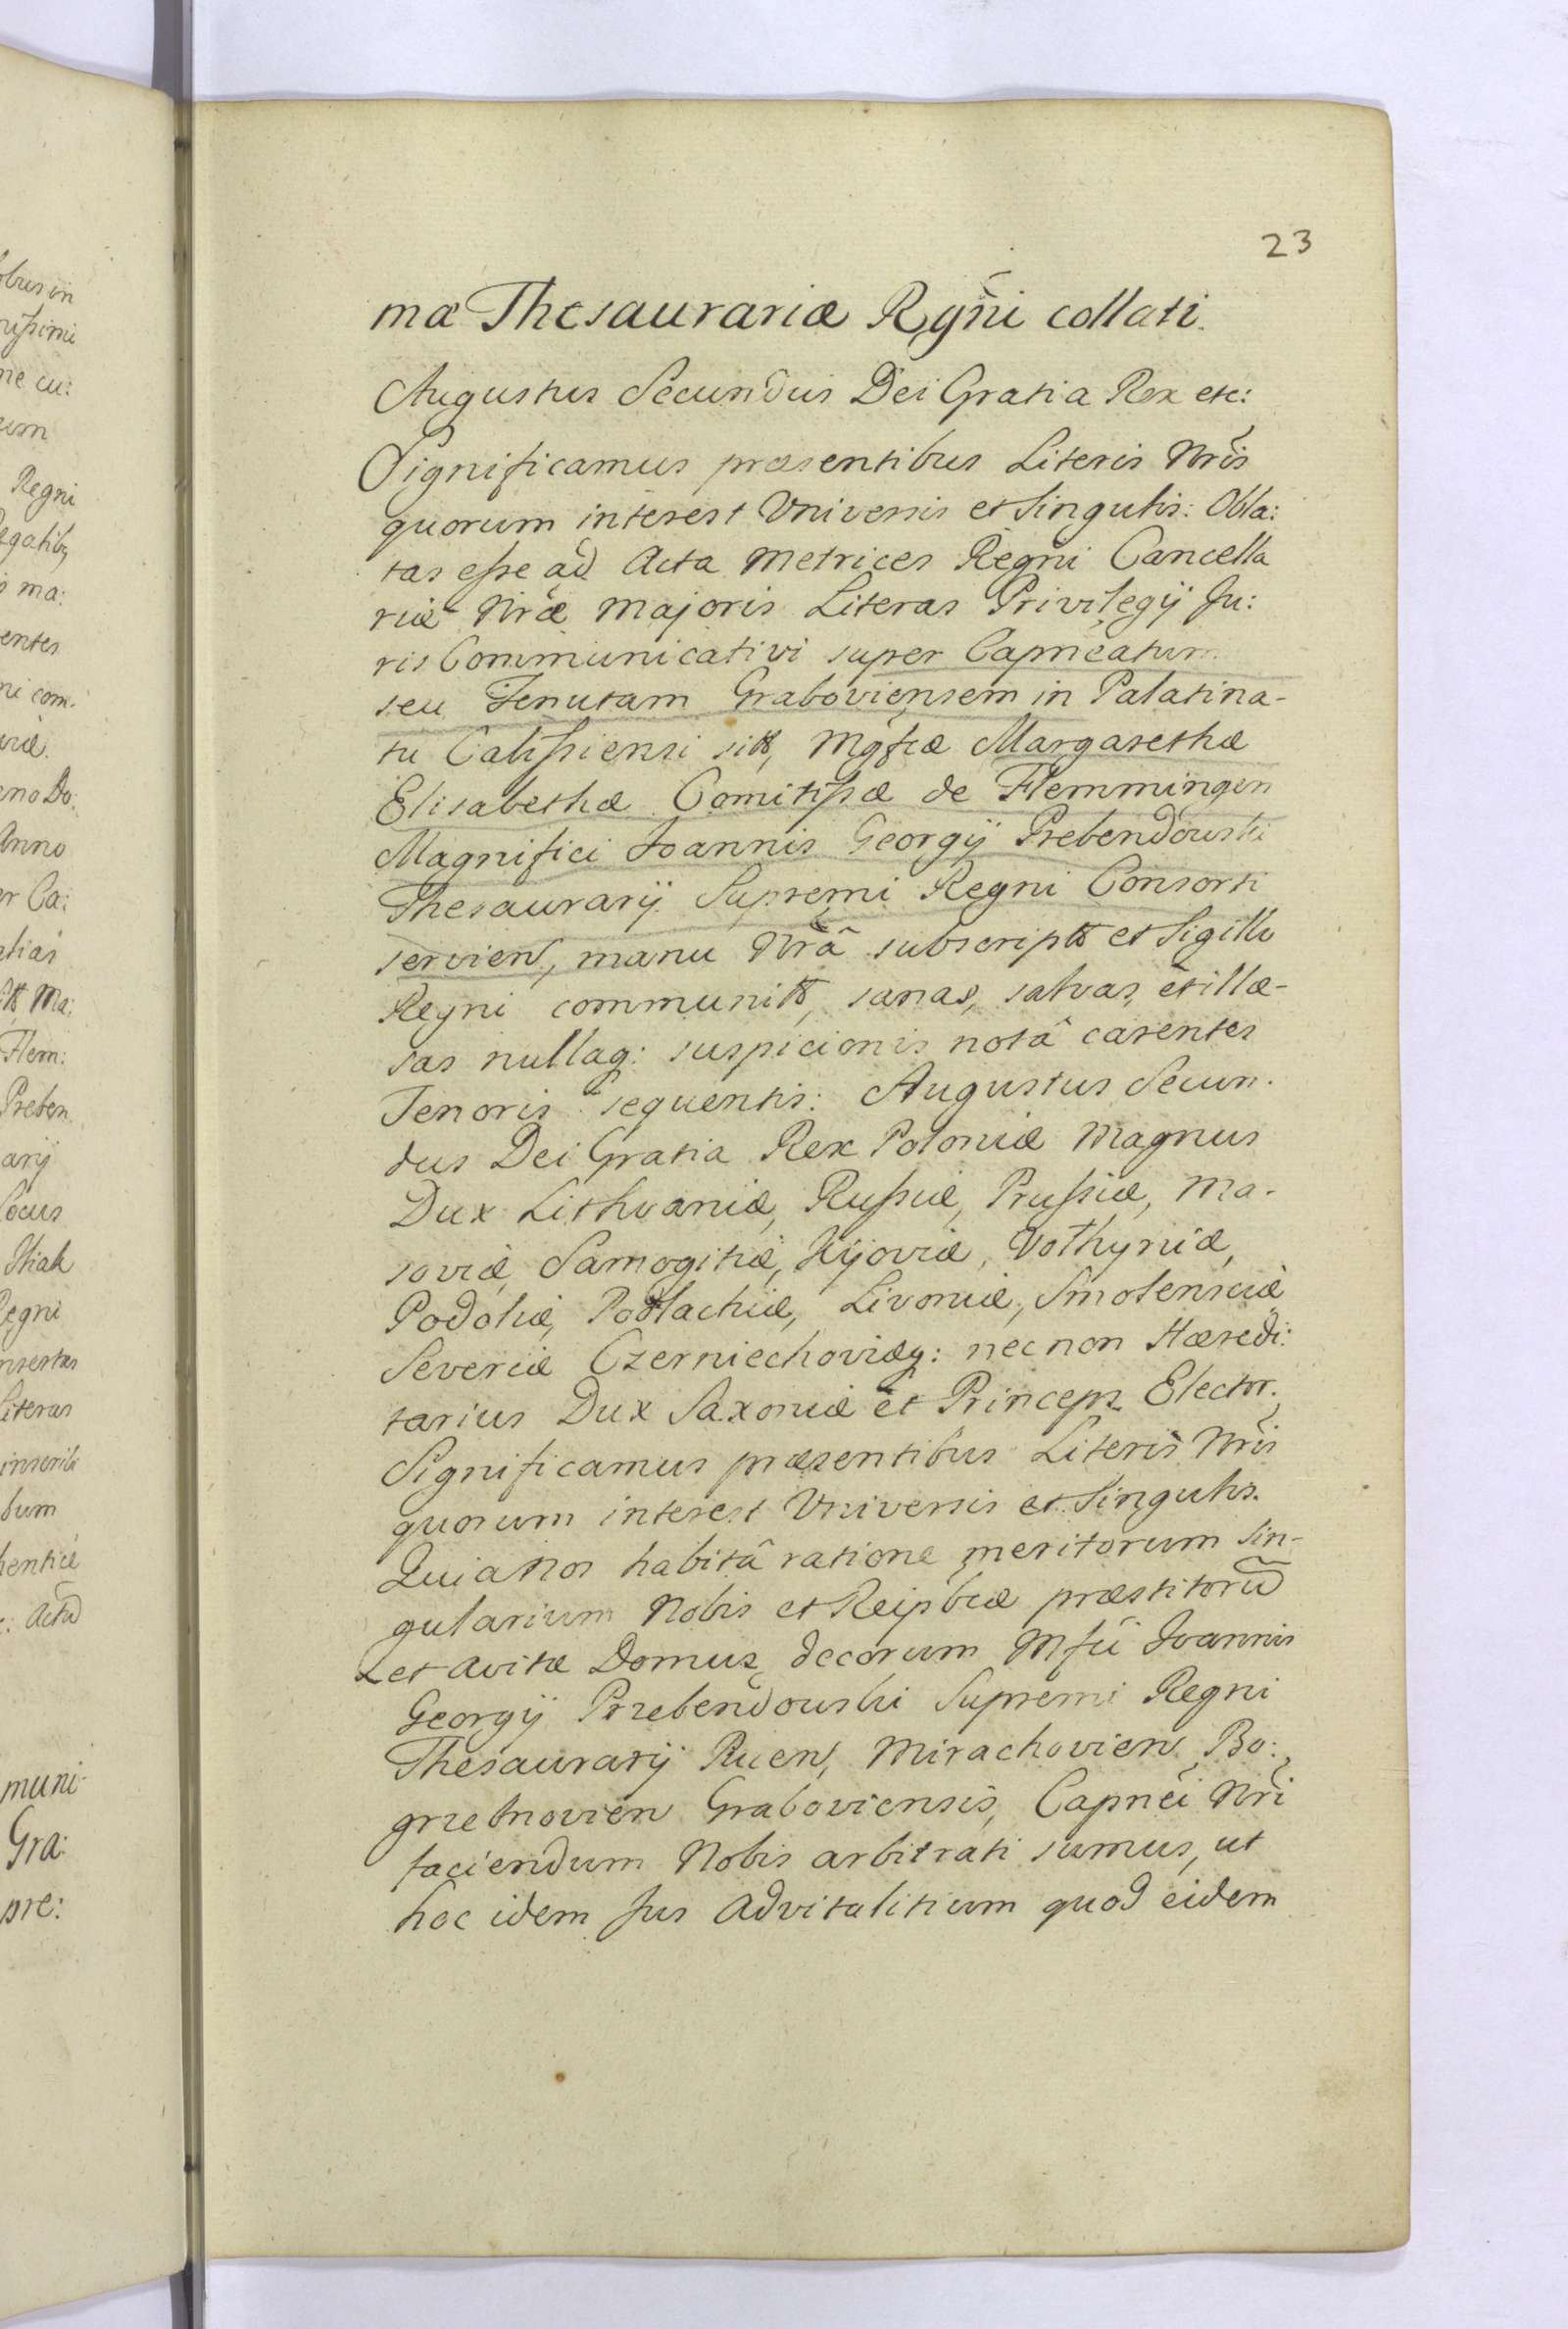 23
mæ Thesaurariæ Rgñi collati.
Augustus Secundus Dei Gratia Rex etc:
Significamus præsentibus Literis Nris
quorum interest Universis et Singulis: Obla:
tas esse ad Acta Metrices Regni Cancella
riæ Nræ Majoris Literas Privilegij Ju:
ris Communicativi super Capneatum
seu Tenutam Graboviensem in Palatina-
tu Calissiensi sitt, Mgfcæ Margarethæ
Elisabethæ Comitissæ de Flemmingen
Magnifici Joannis Georgij Prebendowski
Thesaurarij Supremi Regni Consorti
servien, manu Nrâ subscriptt et Sigillo
Regni communitt, sanas, salvas, et illæ-
sas nullaq: suspicionis notâ carentes
Tenoris sequentis: Augustus Secun-
dus Dei Gratia Rex Poloniæ Magnus
Dux Lithvaniæ, Russiæ, Prussiæ, Ma-
soviæ, Samogitiæ, Kijoviæ, Volhyniæ,
Podoliæ, Podlachiæ, Livoniæ, Smolensciæ
Severiæ Czerniechoviæq: nec non Hæredi:
tarius Dux Saxoniæ et Princeps Elector.
Significamus præsentibus Literis Nris
quorum interest Universis et Singulis.
Quia Nos habitâ ratione meritorum sin-
gularium Nobis et Reipbcæ præstitorũ
et avitæ Domus decorum Mfci Joannis
Georgij Przebendowski Supremi Regni
Thesaurarij Pucen, Mirachovien, Bo:
grzebnovien Graboviensis, Capnei Nri
faciendum Nobis arbitrati sumus, ut
hoc idem Jus Advitalitium quod eidem